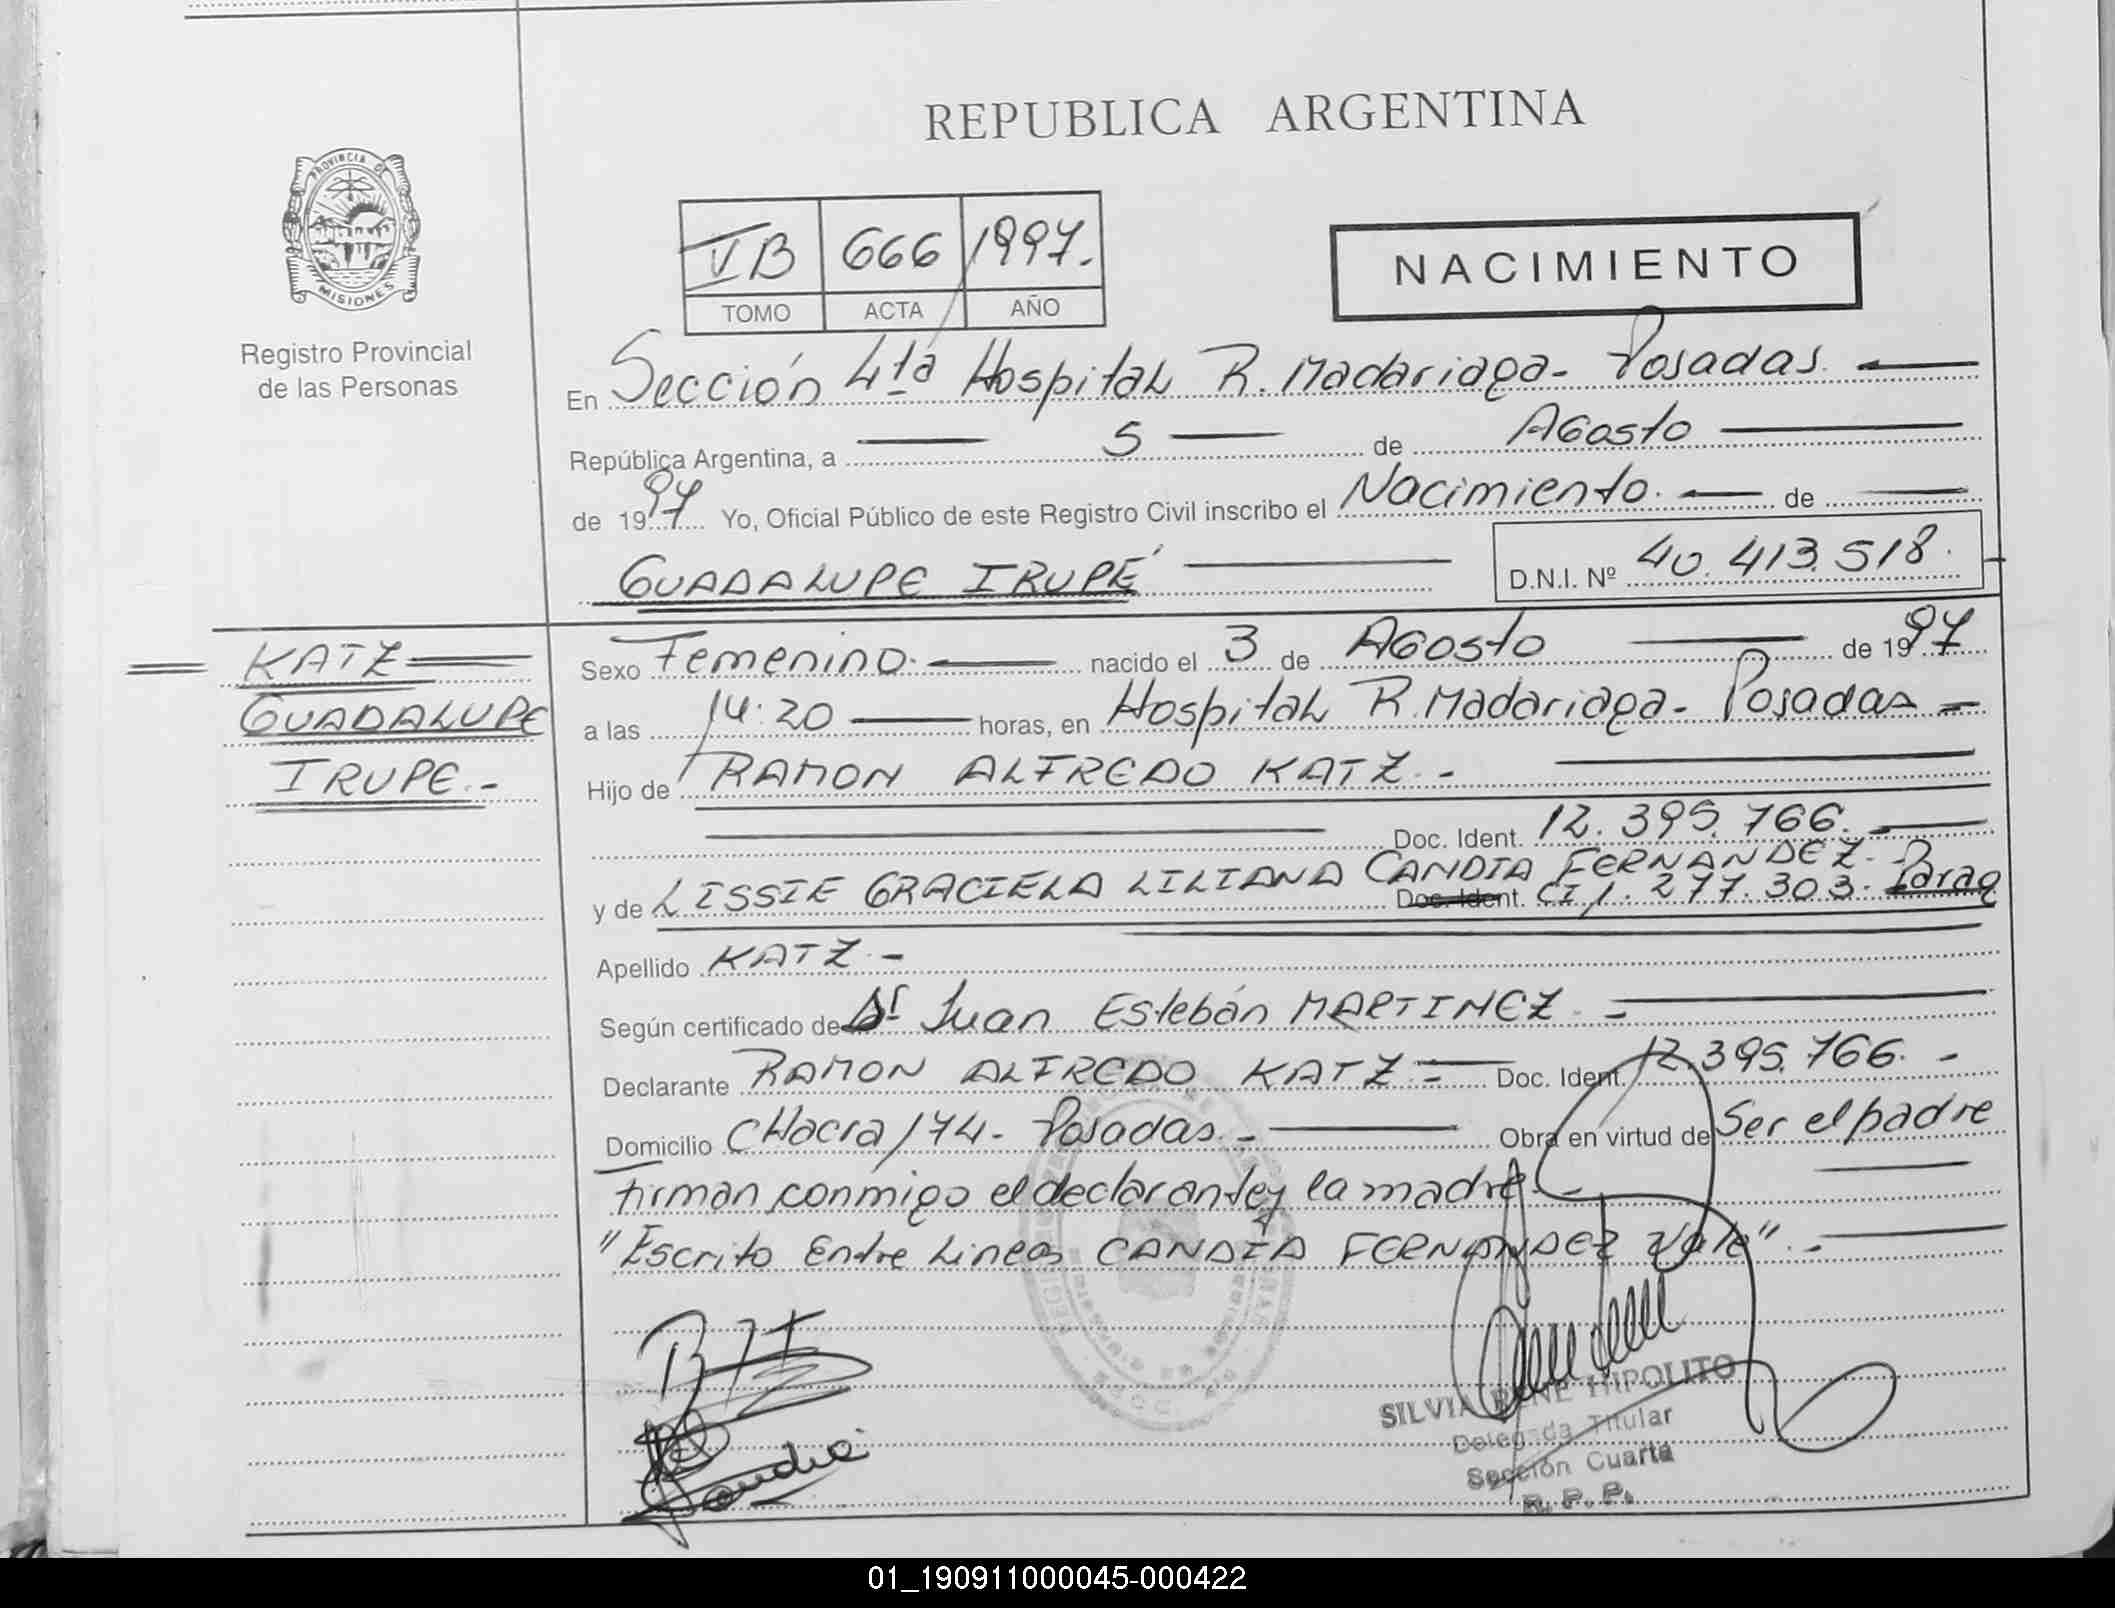 REPUBLICA ARGENTINA
PROVINCIA DE
MISIONES
Registro Provincial
de las Personas
VB 666 1997.
TOMO ACTA AÑO
NACIMIENTO
En Sección 4ta Hospital R. Madariaga - Posadas.
República Argentina, a 5 de Agosto
de 1997 Yo, Oficial Público de este Registro Civil inscribo el Nacimiento. de
GUADALUPE IRUPÉ D.N.I. Nº 40.413.518.
KATZ
GUADALUPE
IRUPE.-
Sexo Femenino. nacido el 3 de Agosto de 1997
a las 14:20 horas, en Hospital R. Madariaga - Posadas
Hijo de RAMON ALFREDO KATZ.-
Doc. Ident. 12.395.766.
CANDIA FERNANDEZ.
y de LISSIE GRACIELA LILIANA Doc. Ident. CI 1.277.303. Parag
Apellido KATZ.-
Según certificado de Dr Juan Estebán MARTINEZ.-
Declarante RAMON ALFREDO KATZ Doc. Ident. 12.395.766.-
Domicilio CHacra 174 - Posadas.- Obra en virtud de Ser el padre
firman conmigo el declarante y la madre.-
"Escrito Entre Lineas CANDIA FERNANDEZ Vale".-
SILVIA RENE HIPOLITO
Delegada Titular
Sección Cuarta
R. P. P.
01_190911000045-000422